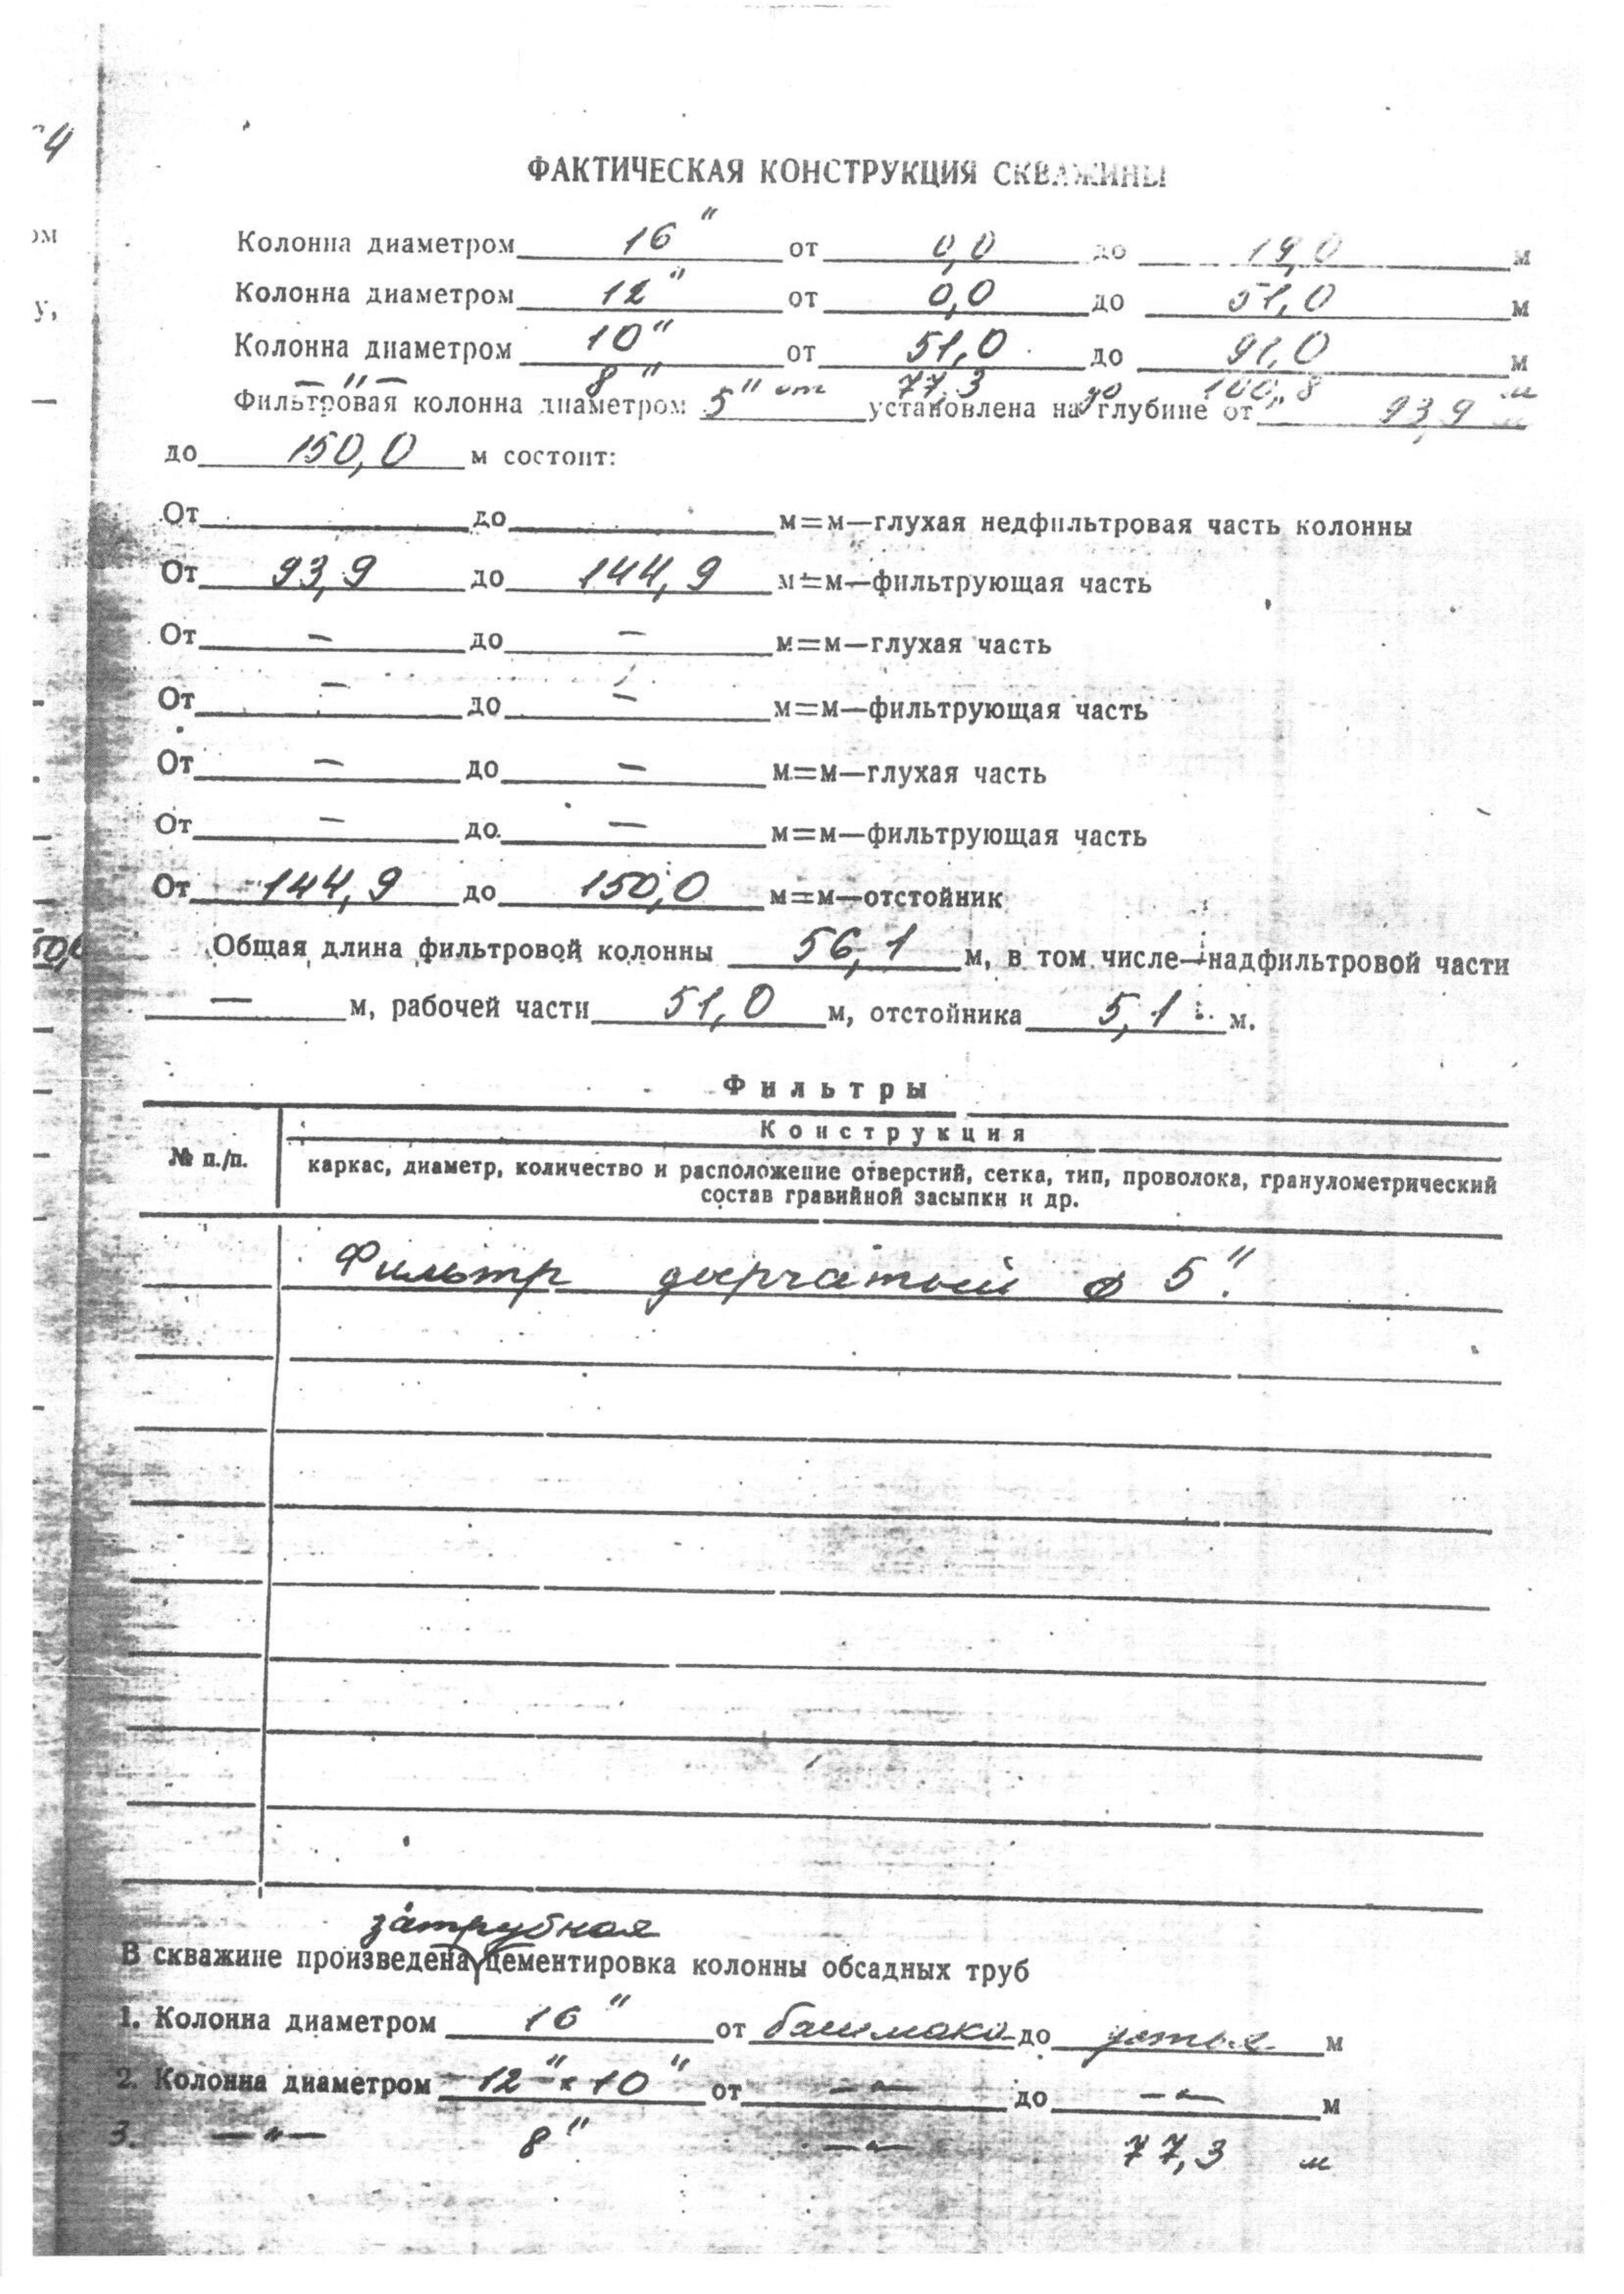 4
ом
у,
ФАКТИЧЕСКАЯ КОНСТРУКЦИЯ СКВАЖИНЫ
Колонна диаметром 16" от 0,0 до 19,0 м
Колонна диаметром 12" от 0,0 до 51,0 м
Колонна диаметром 10" от 51,0 до 91,0 м
— " — 8" от 77,3 до 100,8 м
Фильтровая колонна диаметром 5" установлена на глубине от 93,9 м
до 150,0 м состоит:
От до м=м—глухая недфильтровая часть колонны
От 93,9 до 144,9 м=м—фильтрующая часть
От — до — м=м—глухая часть
От — до — м=м—фильтрующая часть
От — до — м=м—глухая часть
От — до — м=м—фильтрующая часть
От 144,9 до 150,0 м=м—отстойник
Общая длина фильтровой колонны 56,1 м, в том числе—надфильтровой части
— м, рабочей части 51,0 м, отстойника 5,1 м.
Фильтры
Конструкция
№ п./п.
каркас, диаметр, количество и расположение отверстий, сетка, тип, проволока, гранулометрический
состав гравийной засыпки и др.
Фильтр дырчатый ф 5".
затрубная
В скважине произведена цементировка колонны обсадных труб
1. Колонна диаметром 16" от башмака до устья м
2. Колонна диаметром 12" х 10" от — " — до — " — м
3. — " — 8" — " — 77,3 м